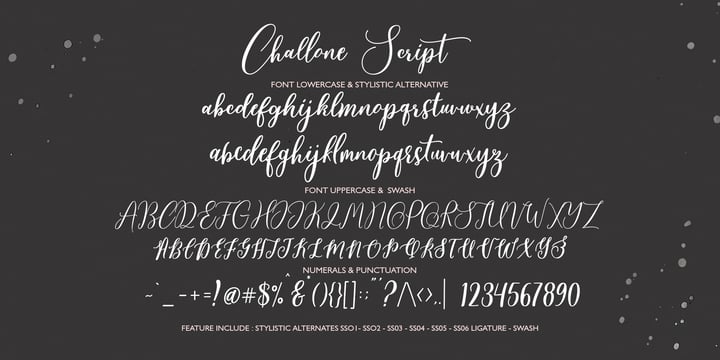 Challone Script
FONT LOWERCASE & STYLISTIC ALTERNATIVE
abcdefghijklmnopqrstuvwxyz
abcdefghijklmnopqrstuvwxyz
FONT UPPERCASE & SWASH
ABCDEFGHIJKLMNOPQRSTUVWXYZ
ABCDEFGHIJKLMNOPQRSTUVWXYZ
NUMERALS & PUNCTUATION
~`_-+=!@#$%^&*(){}[]:;"'?/\<>,.| 1234567890
FEATURE INCLUDE : STYLISTIC ALTERNATES SS01- SS02 - SS03 - SS04 - SS05 - SS06 LIGATURE - SWASH